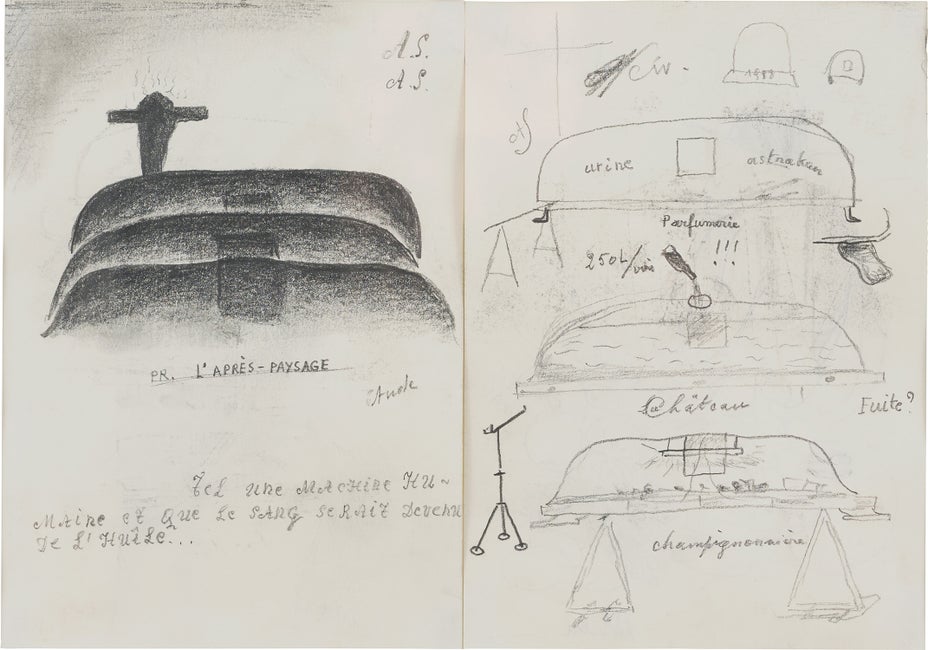 A.S.
A.S.
PR. L'APRÈS-PAYSAGE
Tel une MACHine HU~
MAine eT Que Le SANG SeRAiT Devenu
De L'HUÎLe...
1983
urine
astrakan
Parfumerie
250L/
!!!
Château
Fuite?
champignonnière